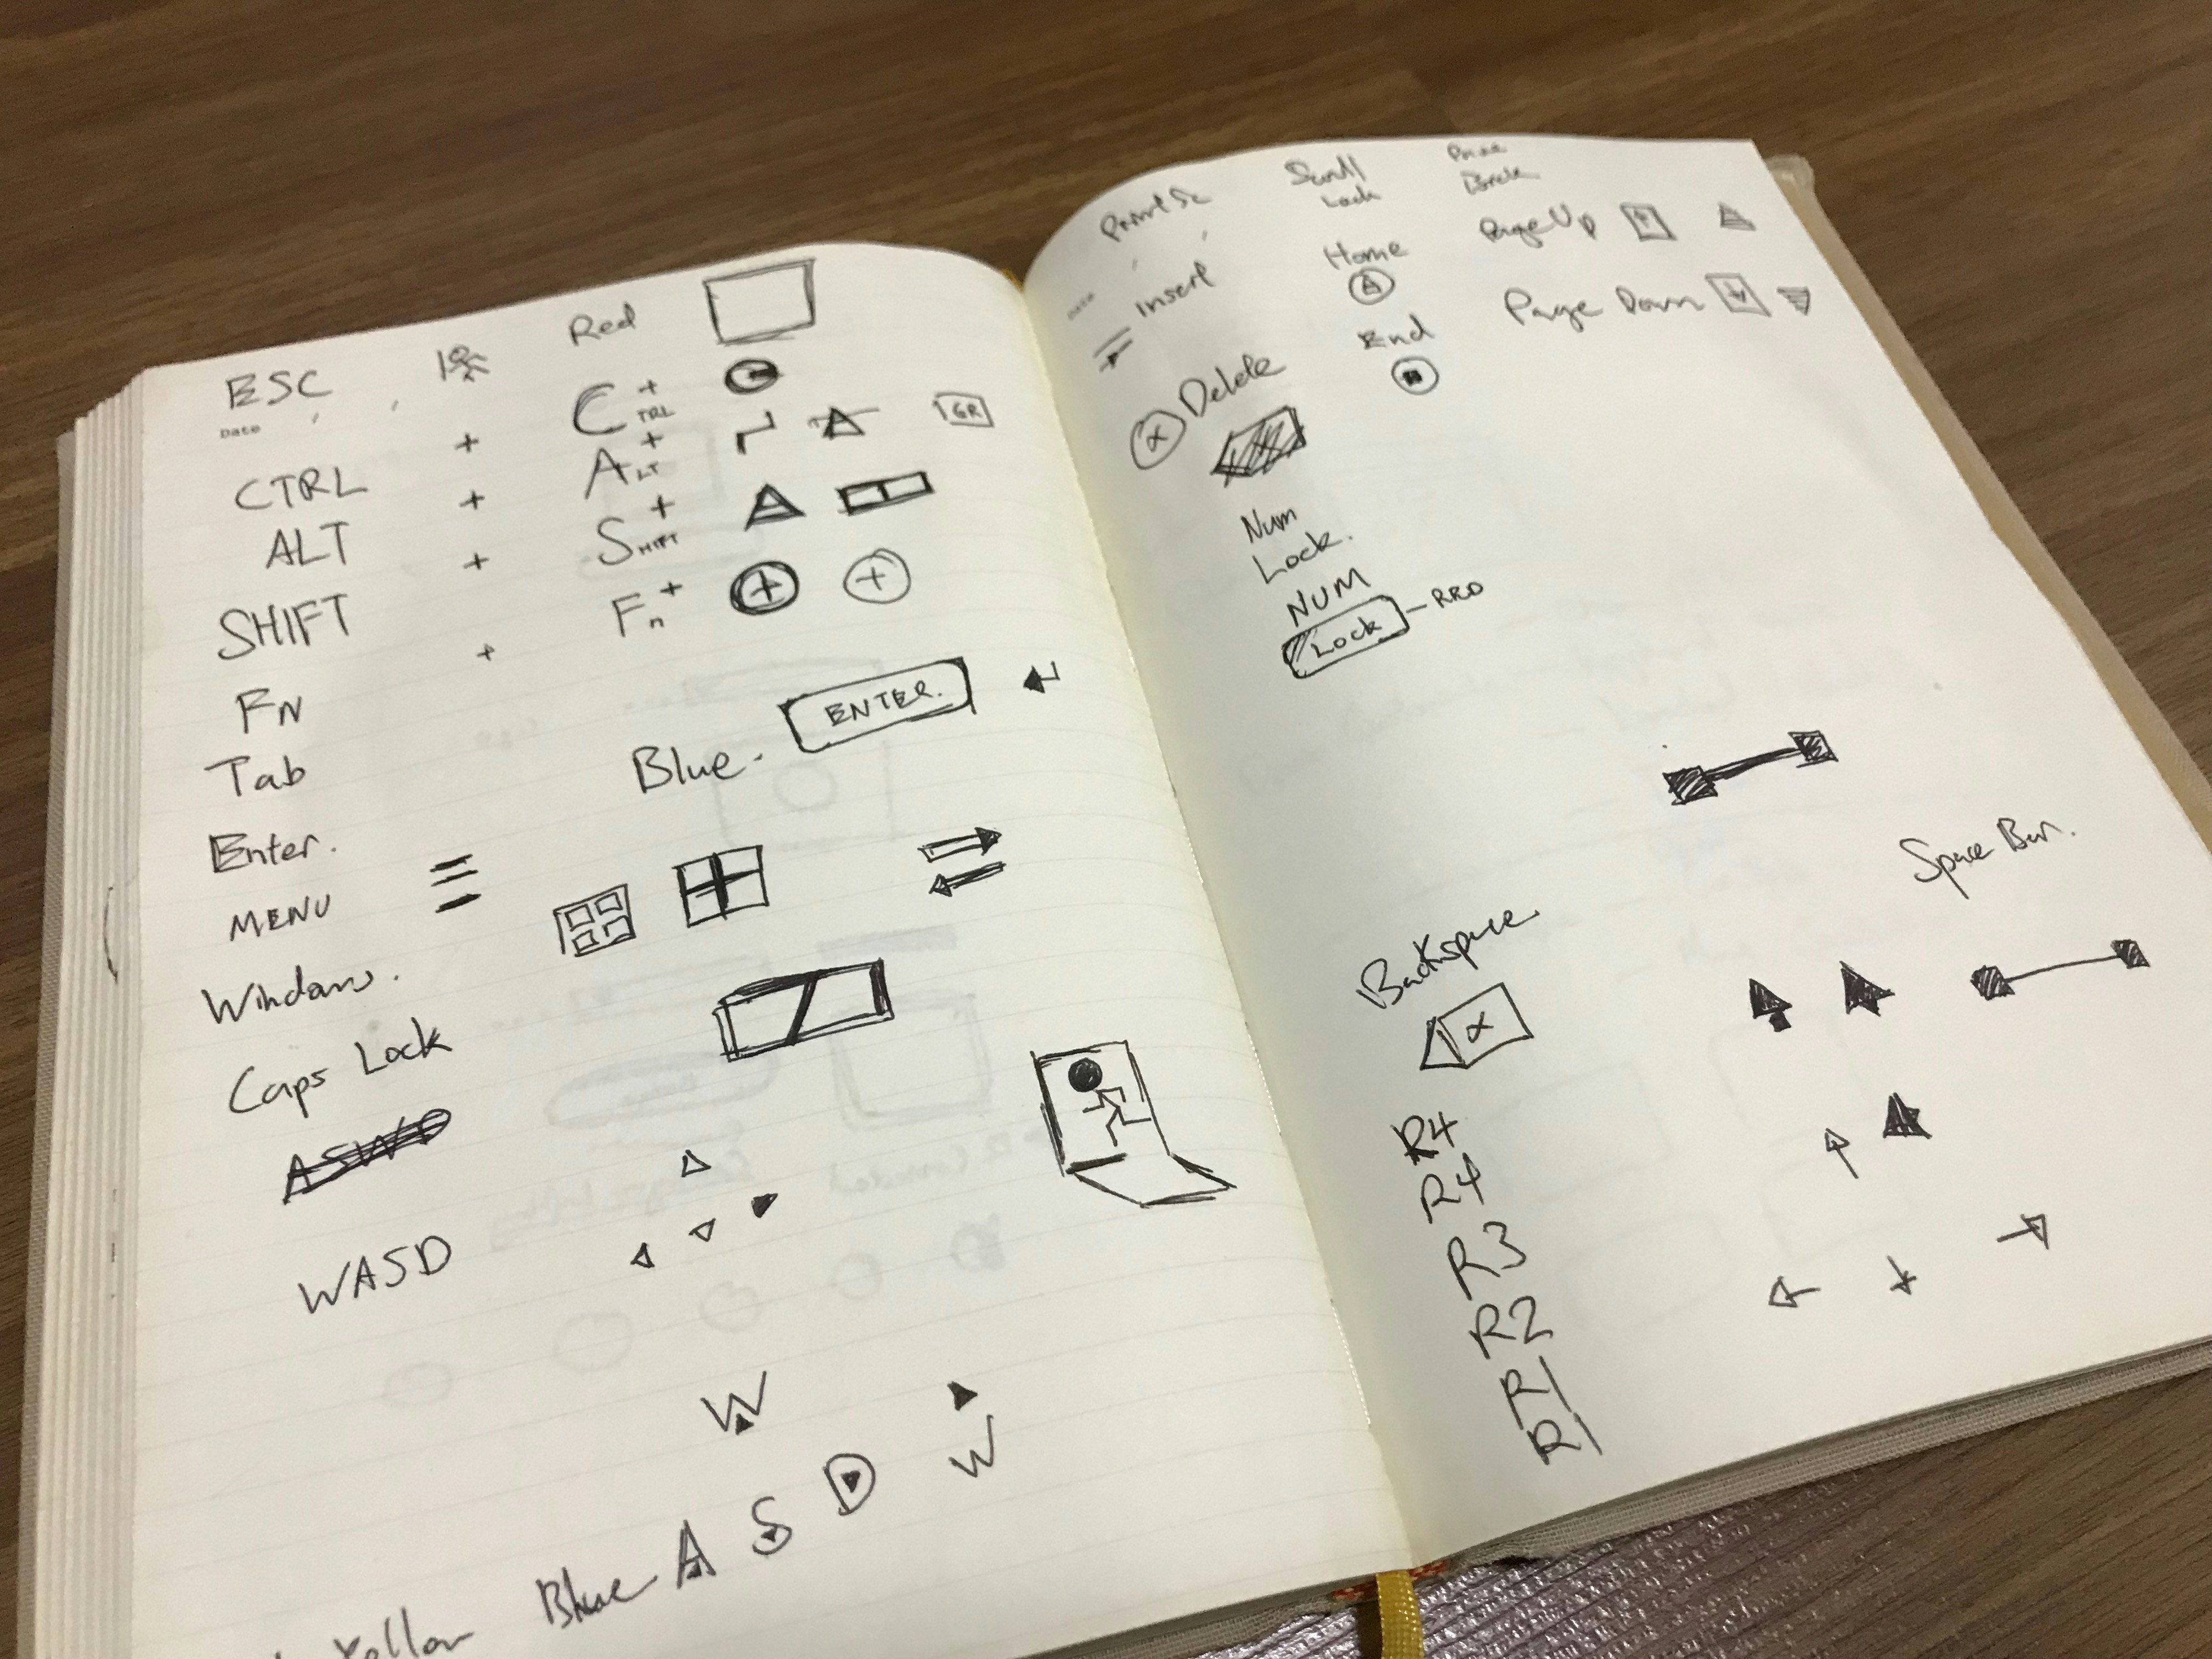 ESC
Red
Date
CTRL
+
C+
TRL
ALT
+
A+
LT
GR
SHIFT
+
S+
HIFT
FN
+
Fn+
+
+
Tab
Blue.
ENTER.
Enter.
MENU
Windows.
Caps Lock
ASWD
WASD
W
W
Yellow Blue A S D
Print Sc
Scroll
Lock
Break
Insert
Home
Page Up
Delete
End
Page Down
x
Num
Lock.
NUM
Lock
Space Bar.
Backspace
x
R4
R4
R3
R2
R1
R1